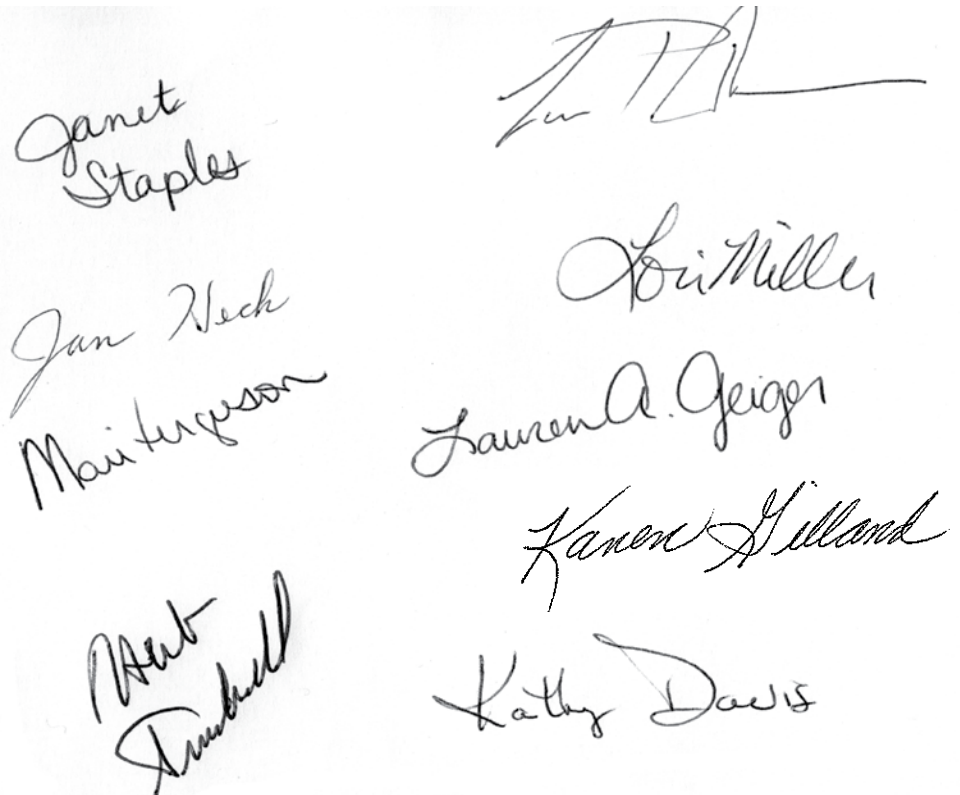 Janet
Staples
Jan Heck
Mari Ferguson
Herb
Lori Miller
Lauren A. Geiger
Karen Gilland
Kathy Davis